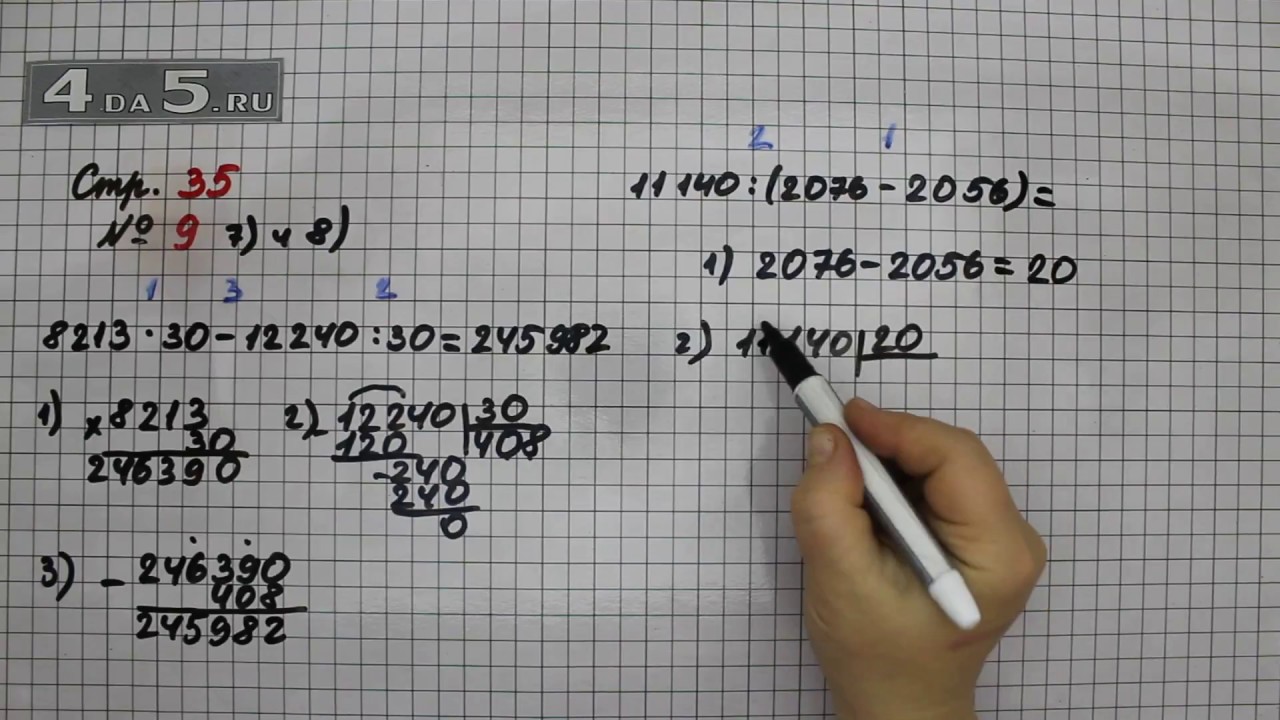 4 DA 5.RU
Стр. 35
№ 9 7) и 8)
1 3 2
8213 · 30 - 12240 : 30 = 245982
1)
× 8213
30
246390
2)
- 12240 | 30
120 | 408
- 240
240
0
3)
- 246390
408
245982
2 1
11140 : (2076 - 2056) =
1) 2076 - 2056 = 20
2) 11140 | 20